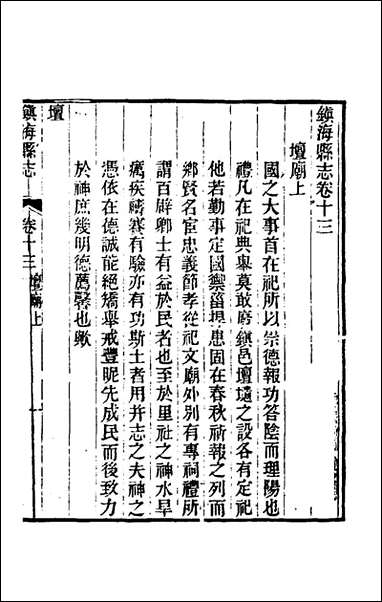 鎮海縣志卷十三
壇廟上
國之大事首在祀所以崇德報功答陰而理陽也
禮凡在祀典舉莫敢廢鎮邑壇壝之設各有定祀
他若勤事定國禦菑捍患固在春秋祈報之列而
鄉賢名宦忠義節孝從祀文廟外別有專祠禮所
謂百辟卿士有益於民者也至於里社之神水旱
癘疾禱賽有驗亦有功斯土者用并志之夫神之
憑依在德誠能絕矯舉戒豐昵先成民而後致力
於神庶幾明德薦馨也歟
壇
鎮海縣志
卷十三
壇廟上